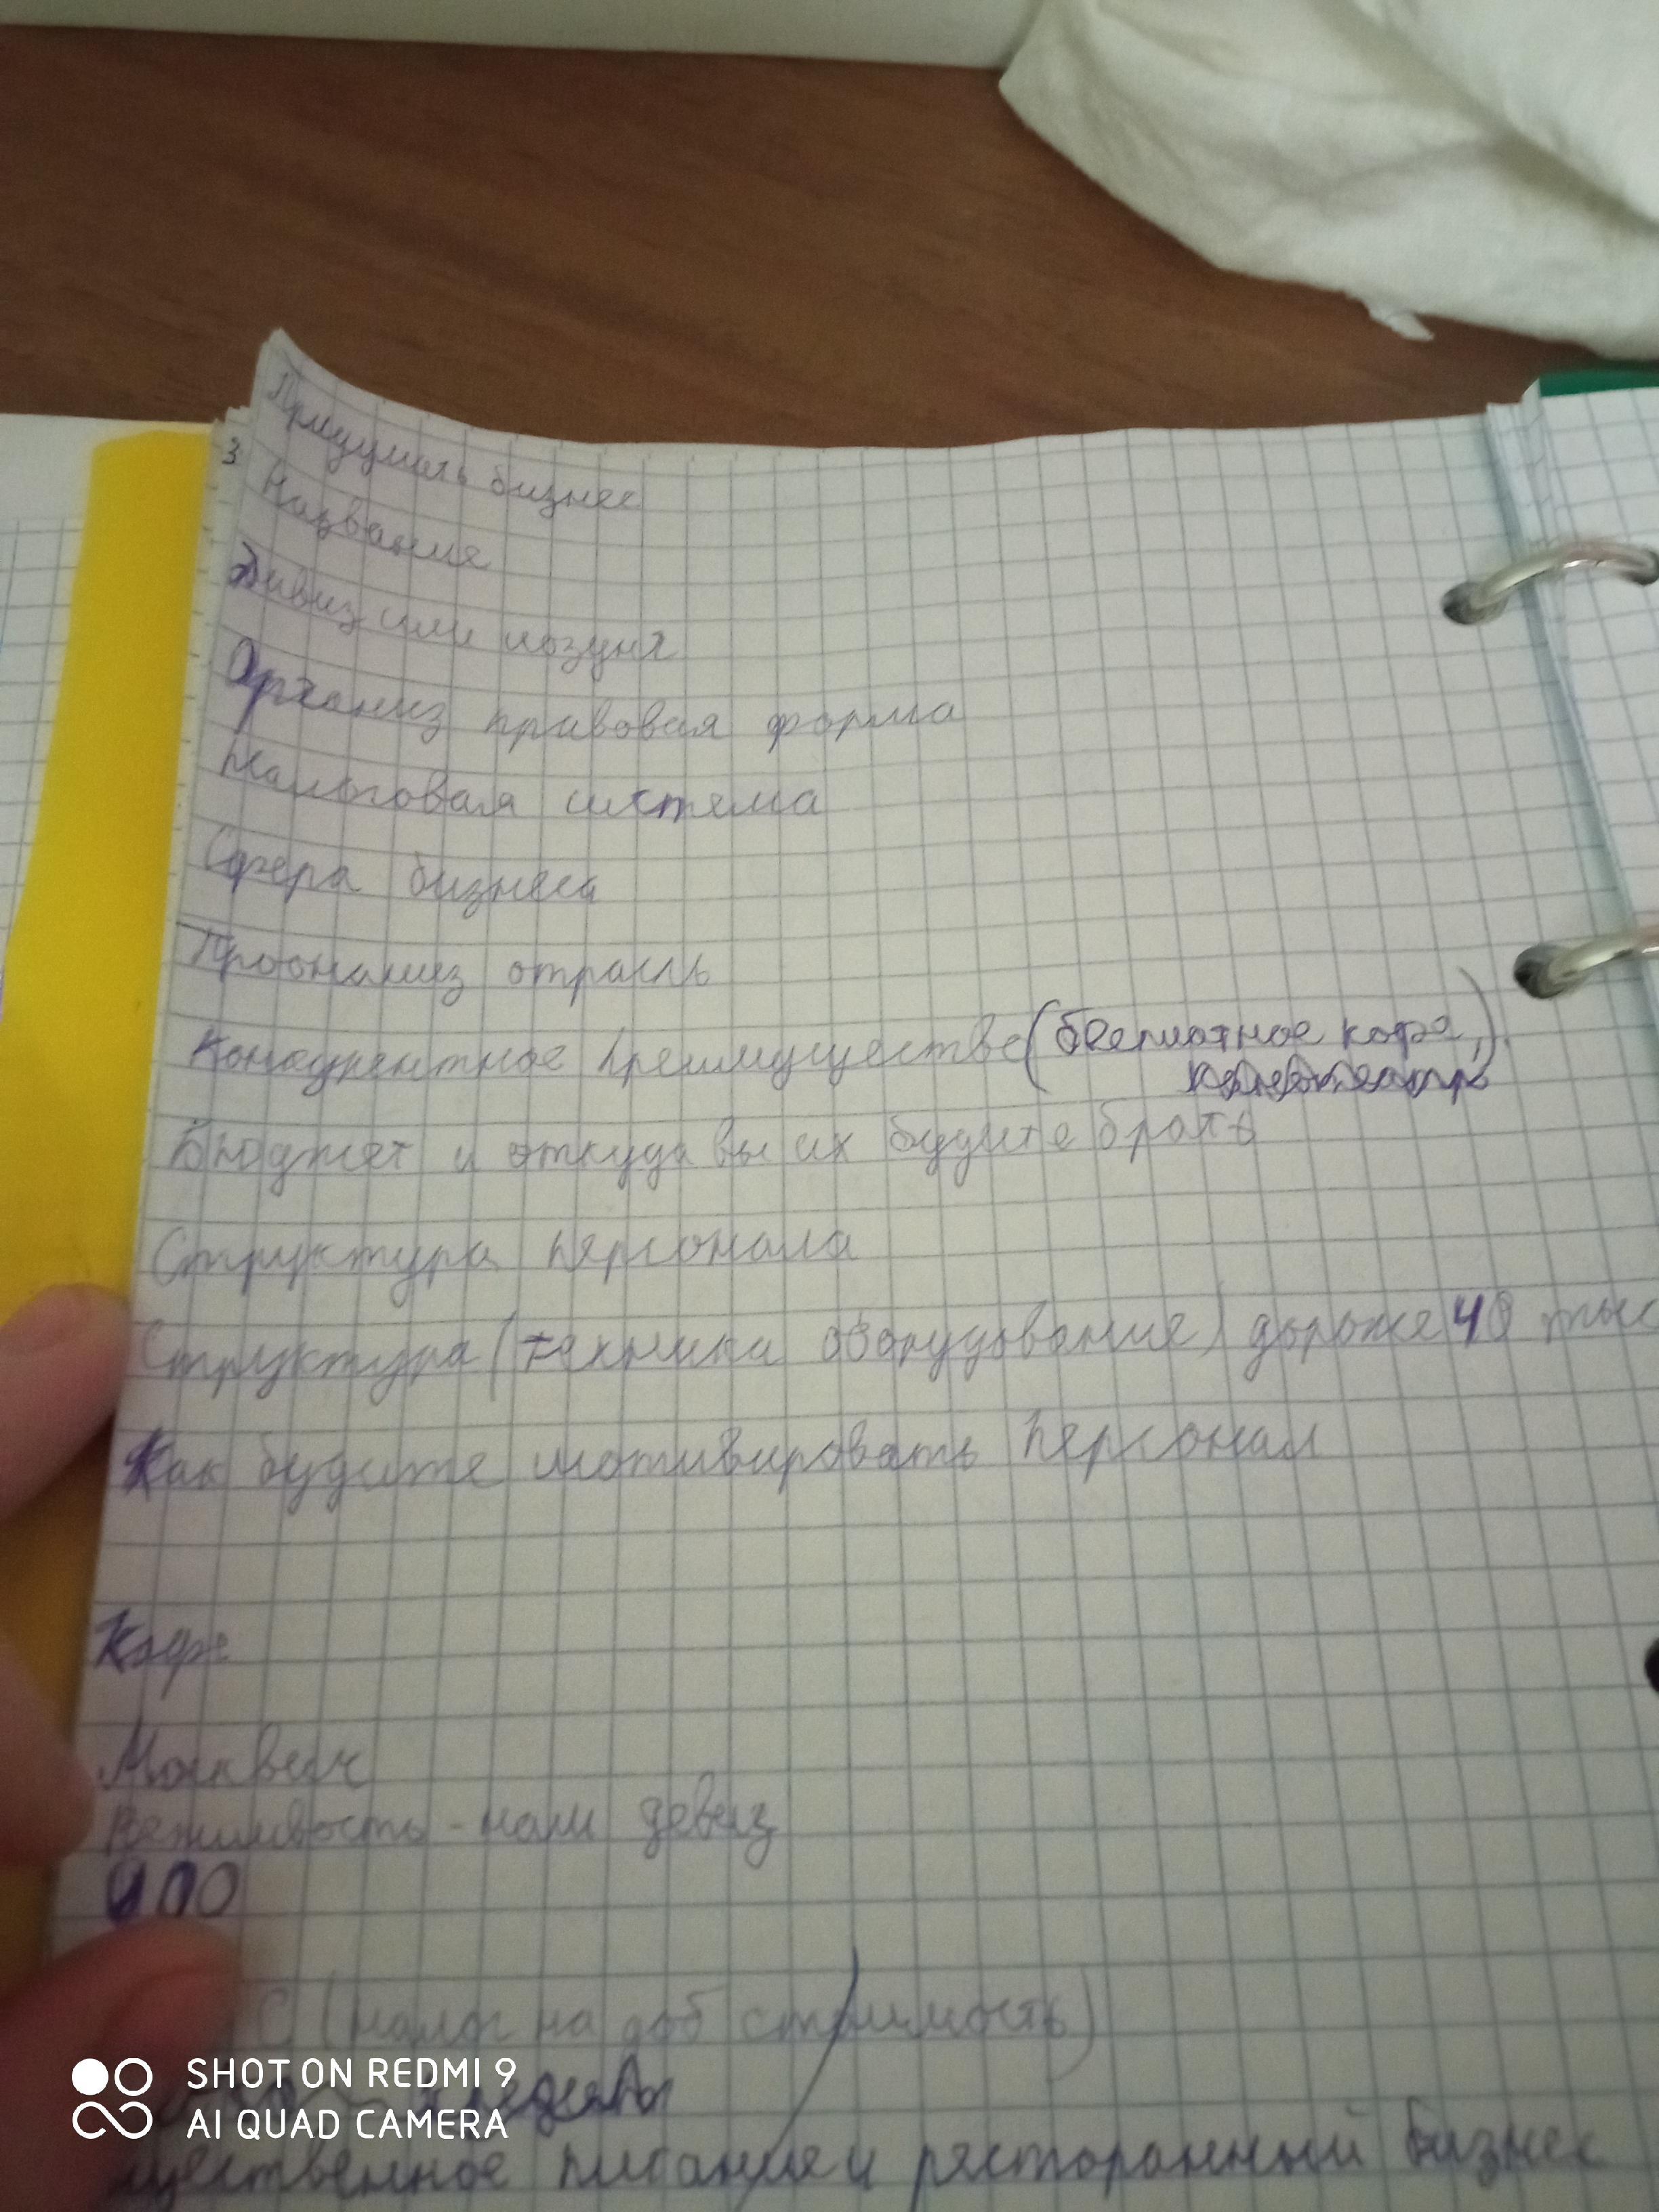 3
Придумать бизнес
Название
Дивиз или лозунг
Организ правовая форма
Налоговая система
Сфера бизнеса
Проонализ отрасль
Конкурентное преимуществе (бесплотное кофе,)
Бюджет и откуда вы их будите брать
Структура персонала
Структура (техника оборудование) дороже 40 тыс
Как будите мотивировать персонал
Кофе
Вежливость - наш девиз
С (налог на доб стоимость)
щественное питание и ресторанный бизнес
SHOT ON REDMI 9
AI QUAD CAMERA